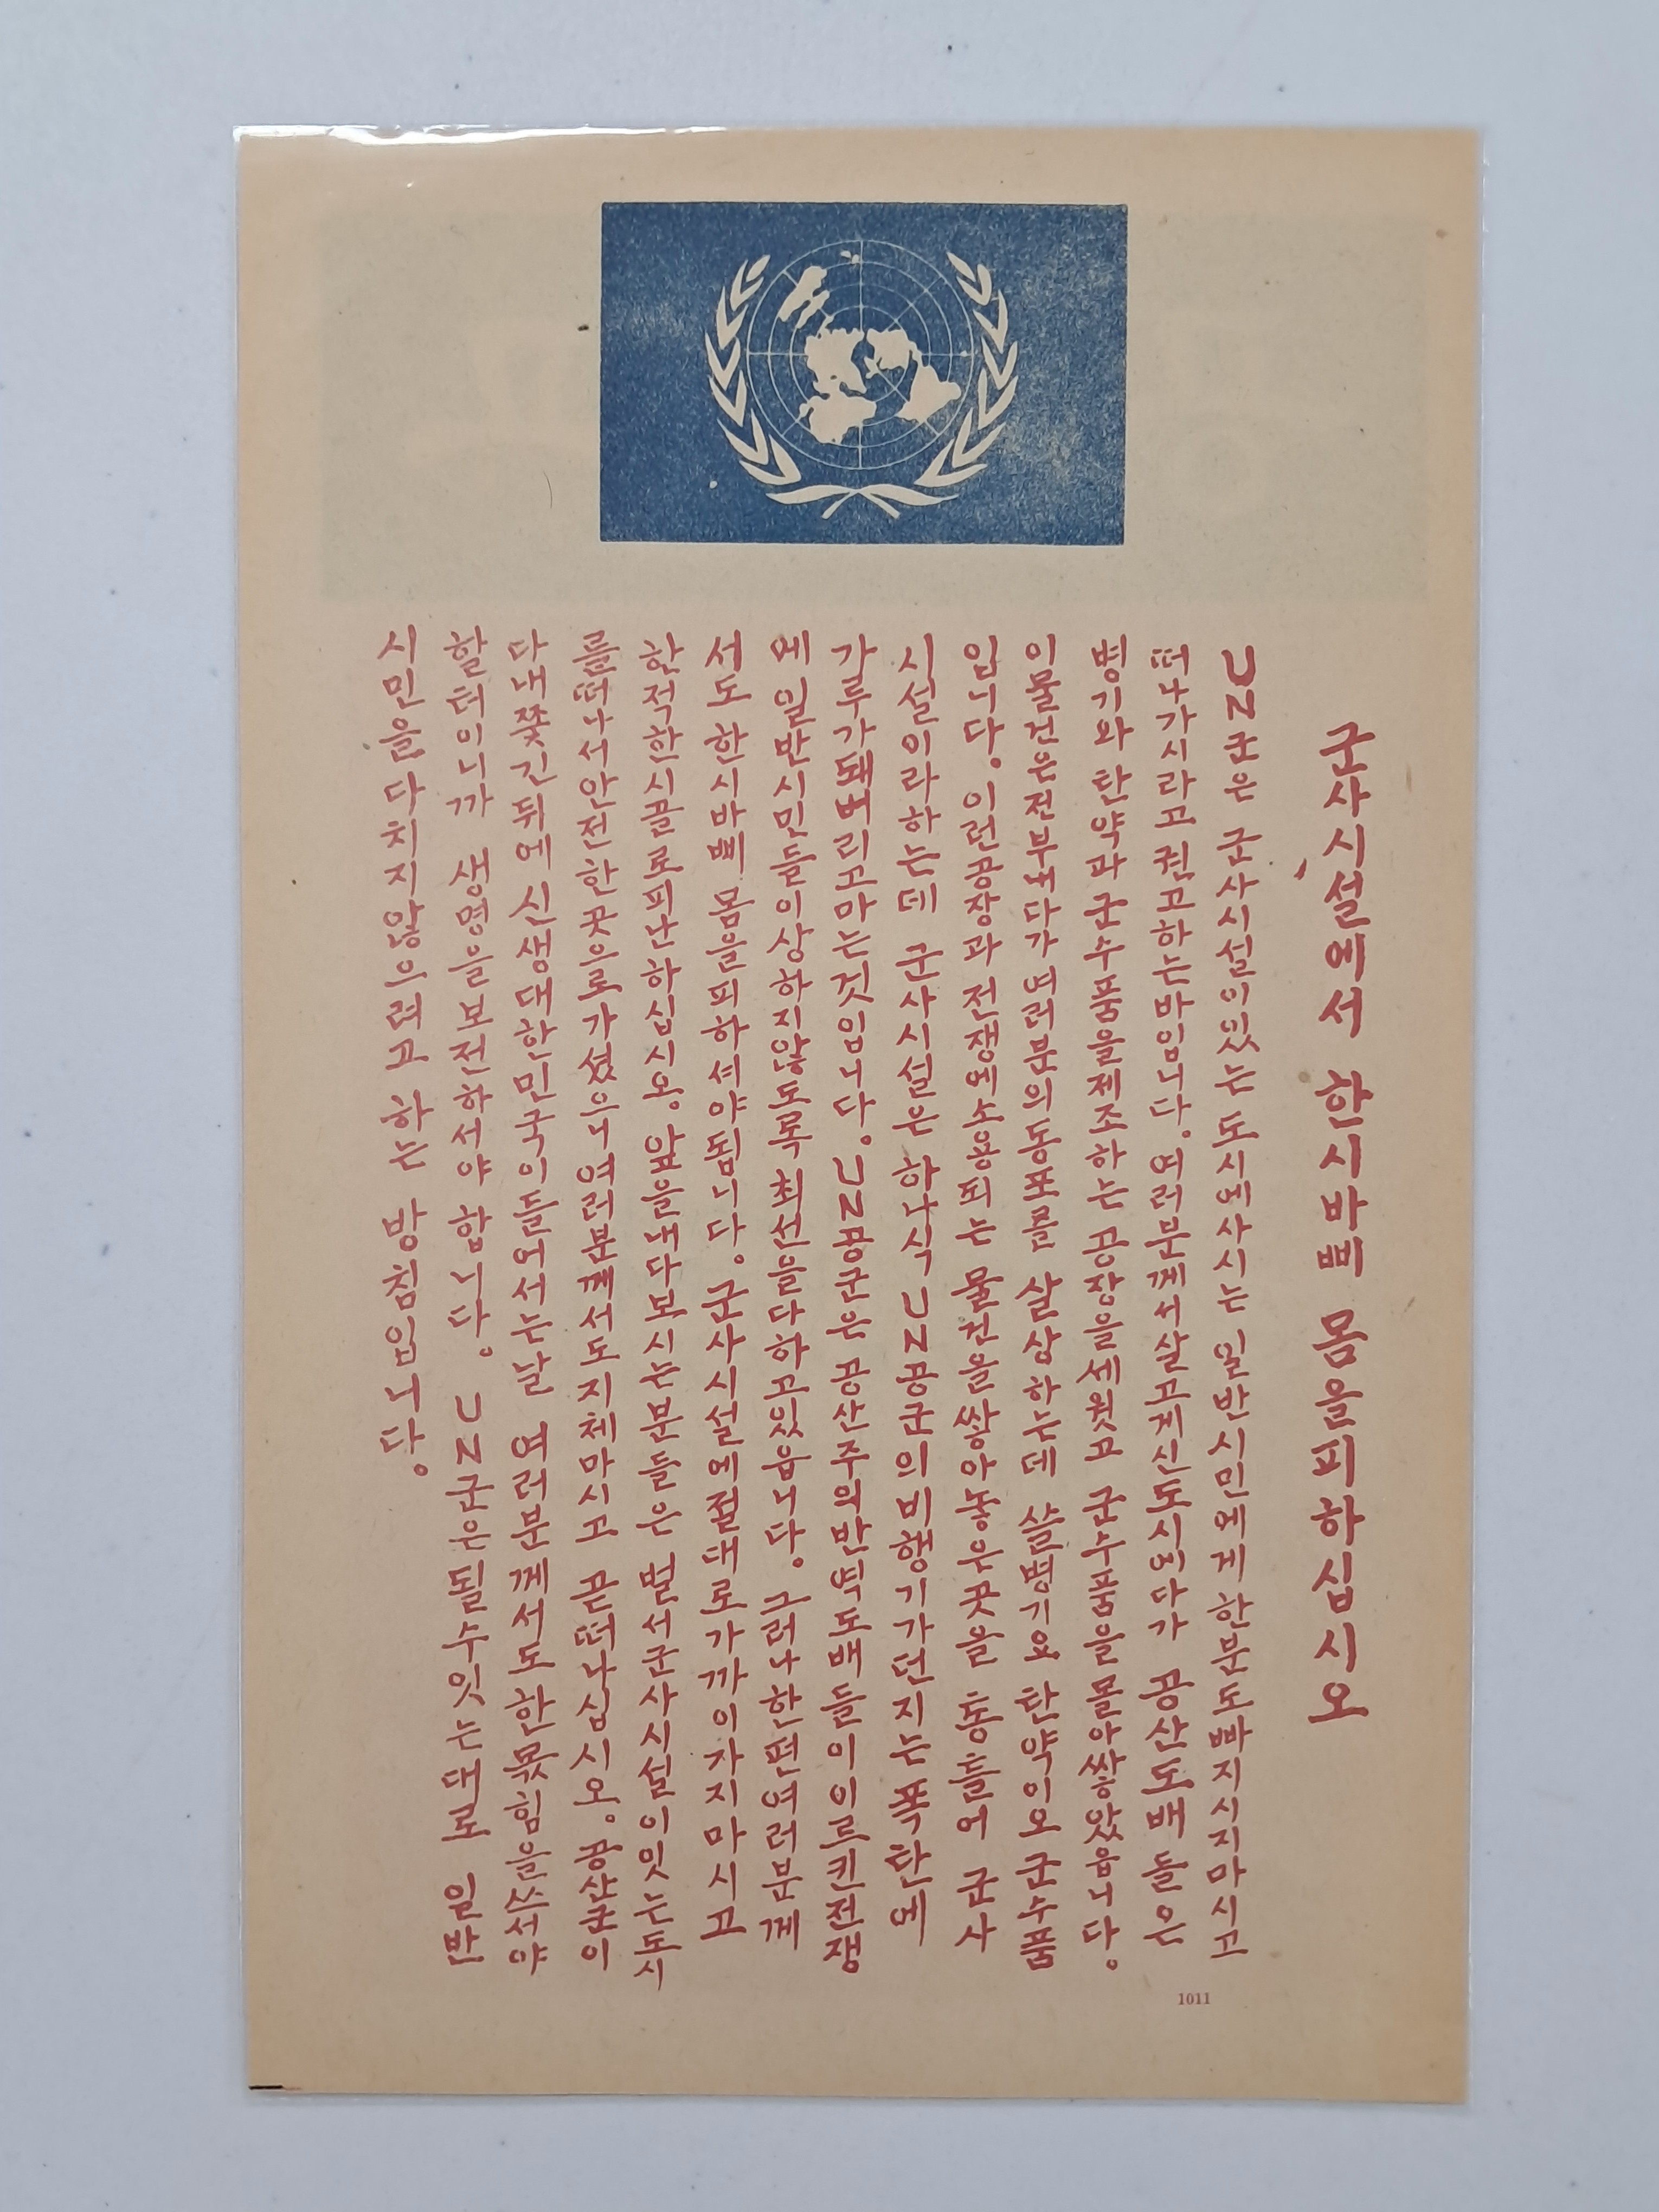 군사시설에서 한시바삐 몸을피하십시오
UN군은 군사시설이있는 도시에사시는 일반시민에게 한분도빠지시지마시고
떠나가시라고 권고하는바입니다. 여러분께서살고계신도시에다가 공산도배들은
병기와 탄약과군수품을제조하는 공장을세웠고 군수품을몰아쌓았읍니다。
이물건은전부여다가 여러분의동포를 살상하는데 쓸병기요 탄약이오군수품
입니다。이런공장과 전쟁에소용되는 물건을쌓아놓은곳을 통틀어 군사
시설이라하는데 군사시설은 하나식 UN공군의비행기가던지는폭탄에
가루가돼버리고마는것입니다。UN공군은 공산주의반역도배들이이르킨전쟁
에 일반시민들이상하지않도록 최선을다하고있읍니다。그러나한편여러분께
서도 한시바삐 몸을피하셔야됩니다。군사시설에절대로가까이가지마시고
한적한시골로피난하십시오。앞을내다보시는분들은 벌서군사시설이잇는도시
를떠나서안전한곳으로가셨으니여러분께서도지체마시고 곧떠나십시오。공산군이
다내쫓긴뒤에신생대한민국이들어서는날 여러분께서도한몫힘을쓰셔야
할터이니까 생명을보전하셔야합니다。UN군은될수잇는대로 일반
시민을다치지않으려고 하는 방침입니다。
1011